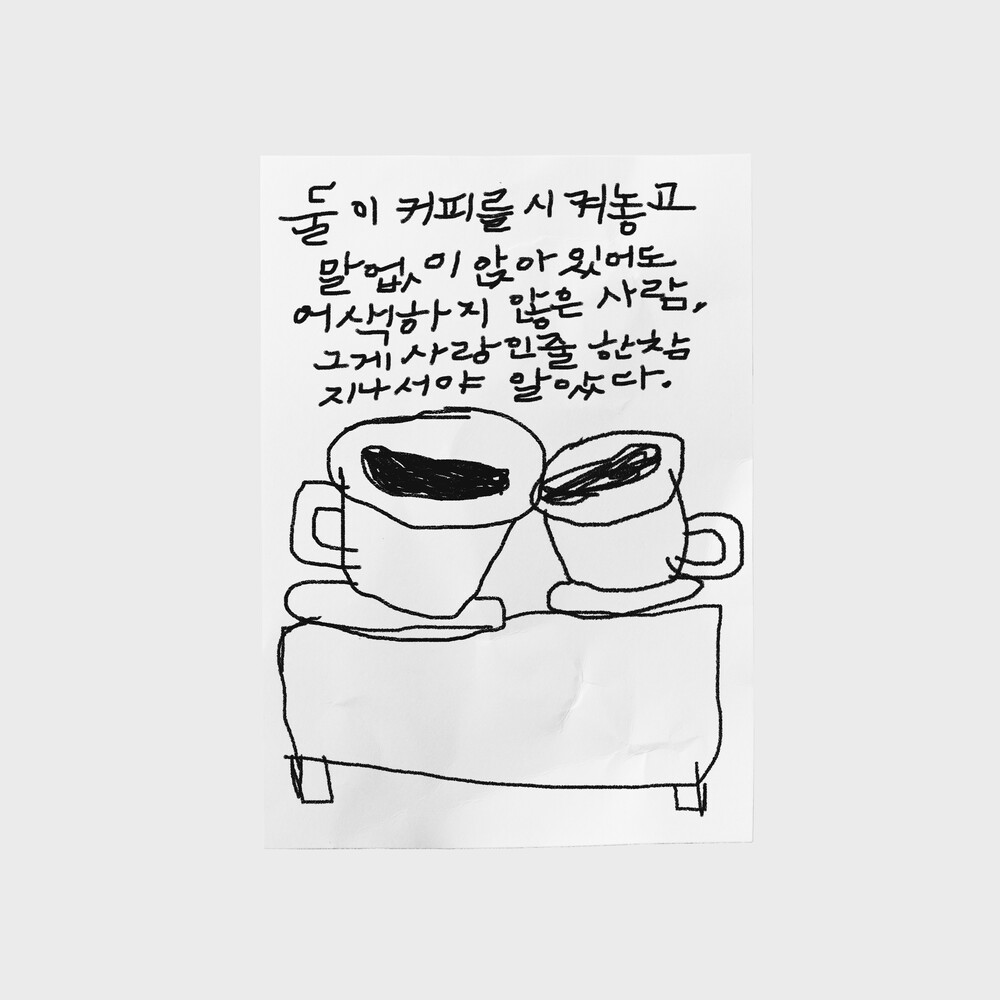 둘이 커피를 시켜놓고
말없이 앉아 있어도
어색하지 않은 사람,
그게 사랑인줄 한참
지나서야 알았다.